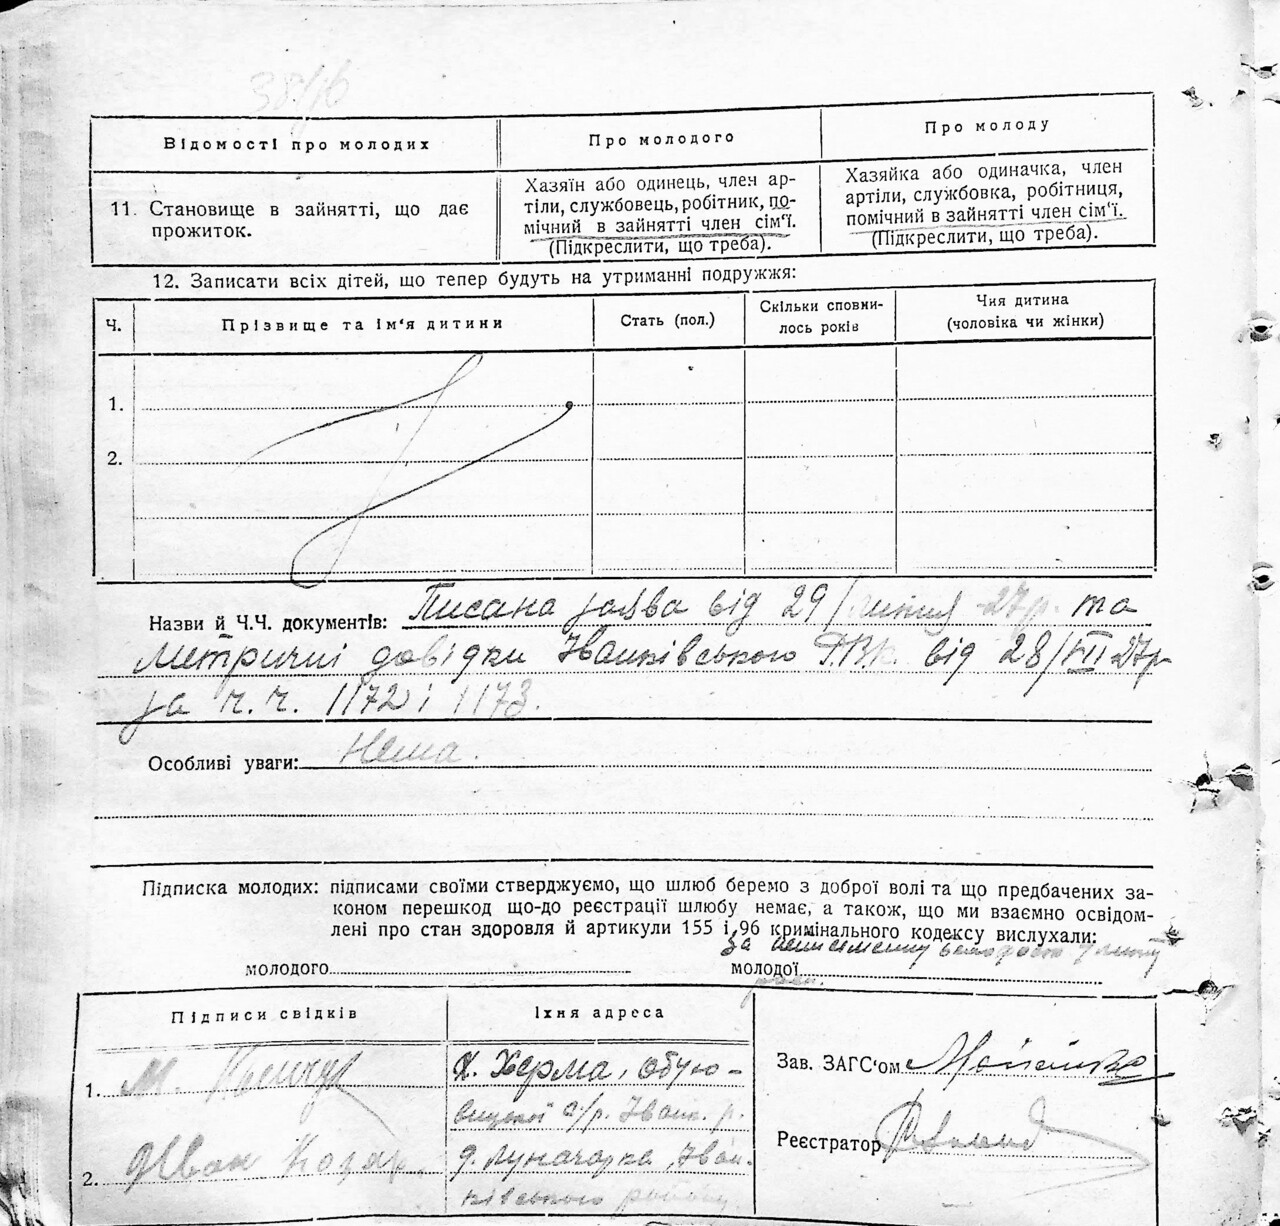 38/16
Відомості про молодих
Про молодого
Про молоду
11. Становище в зайнятті, що дає
прожиток.
Хазяїн або одинець, член ар-
тіли, службовець, робітник, по-
мічний в зайнятті член сім'ї.
(Підкреслити, що треба).
Хазяйка або одиначка, член
артіли, службовка, робітниця,
помічний в зайнятті член сім'ї.
(Підкреслити, що треба).
12. Записати всіх дітей, що тепер будуть на утриманні подружжя:
Ч.
Прізвище та ім'я дитини
Стать (пол.)
Скільки сповни-
лось років
Чия дитина
(чоловіка чи жінки)
1.
2.
Назви й Ч.Ч. документів: Писана заява від 29/липня 27р. та
метричні довідки Іванківського РВК від 28/VII 27р
за ч.ч. 1172 і 1173.
Особливі уваги: Нема.
Підписка молодих: підписами своїми стверджуємо, що шлюб беремо з доброї волі та що предбачених за-
коном перешкод що-до реєстрації шлюбу немає, а також, що ми взаємно освідом-
лені про стан здоровля й артикули 155 і 96 кримінального кодексу вислухали:
за
молодого
молодої
Підписи свідків
Їхня адреса
1. М.
х. Херма, обую-
вицької с/р. Іванк. р.
Зав. ЗАГС'ом
Реєстратор
2. Іван Козар.
д. Луначарка, Іван-
ківського району